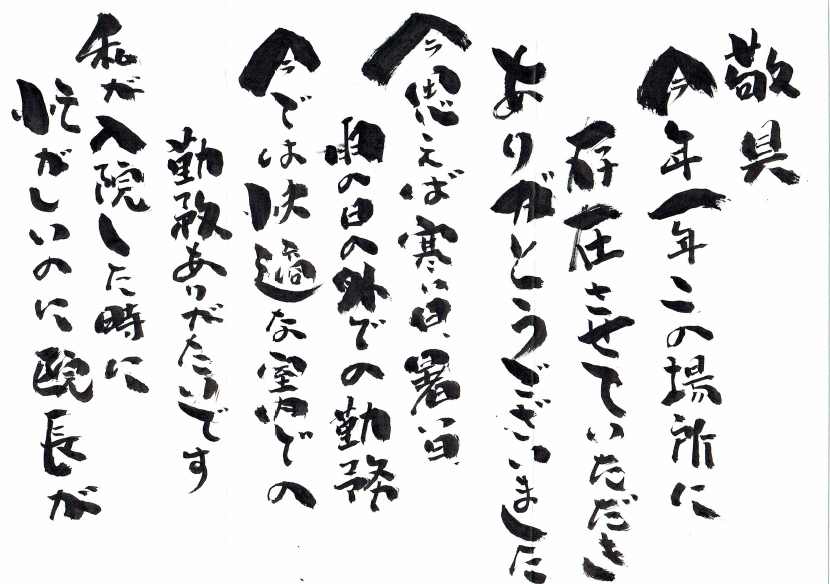 敬具
今年一年この場所に
存在させていただき
ありがとうございました
今思えば寒い日、暑い日、
雨の日の外での勤務
今では快適な室内での
勤務ありがたいです
私が入院した時に
忙がしいのに院長が